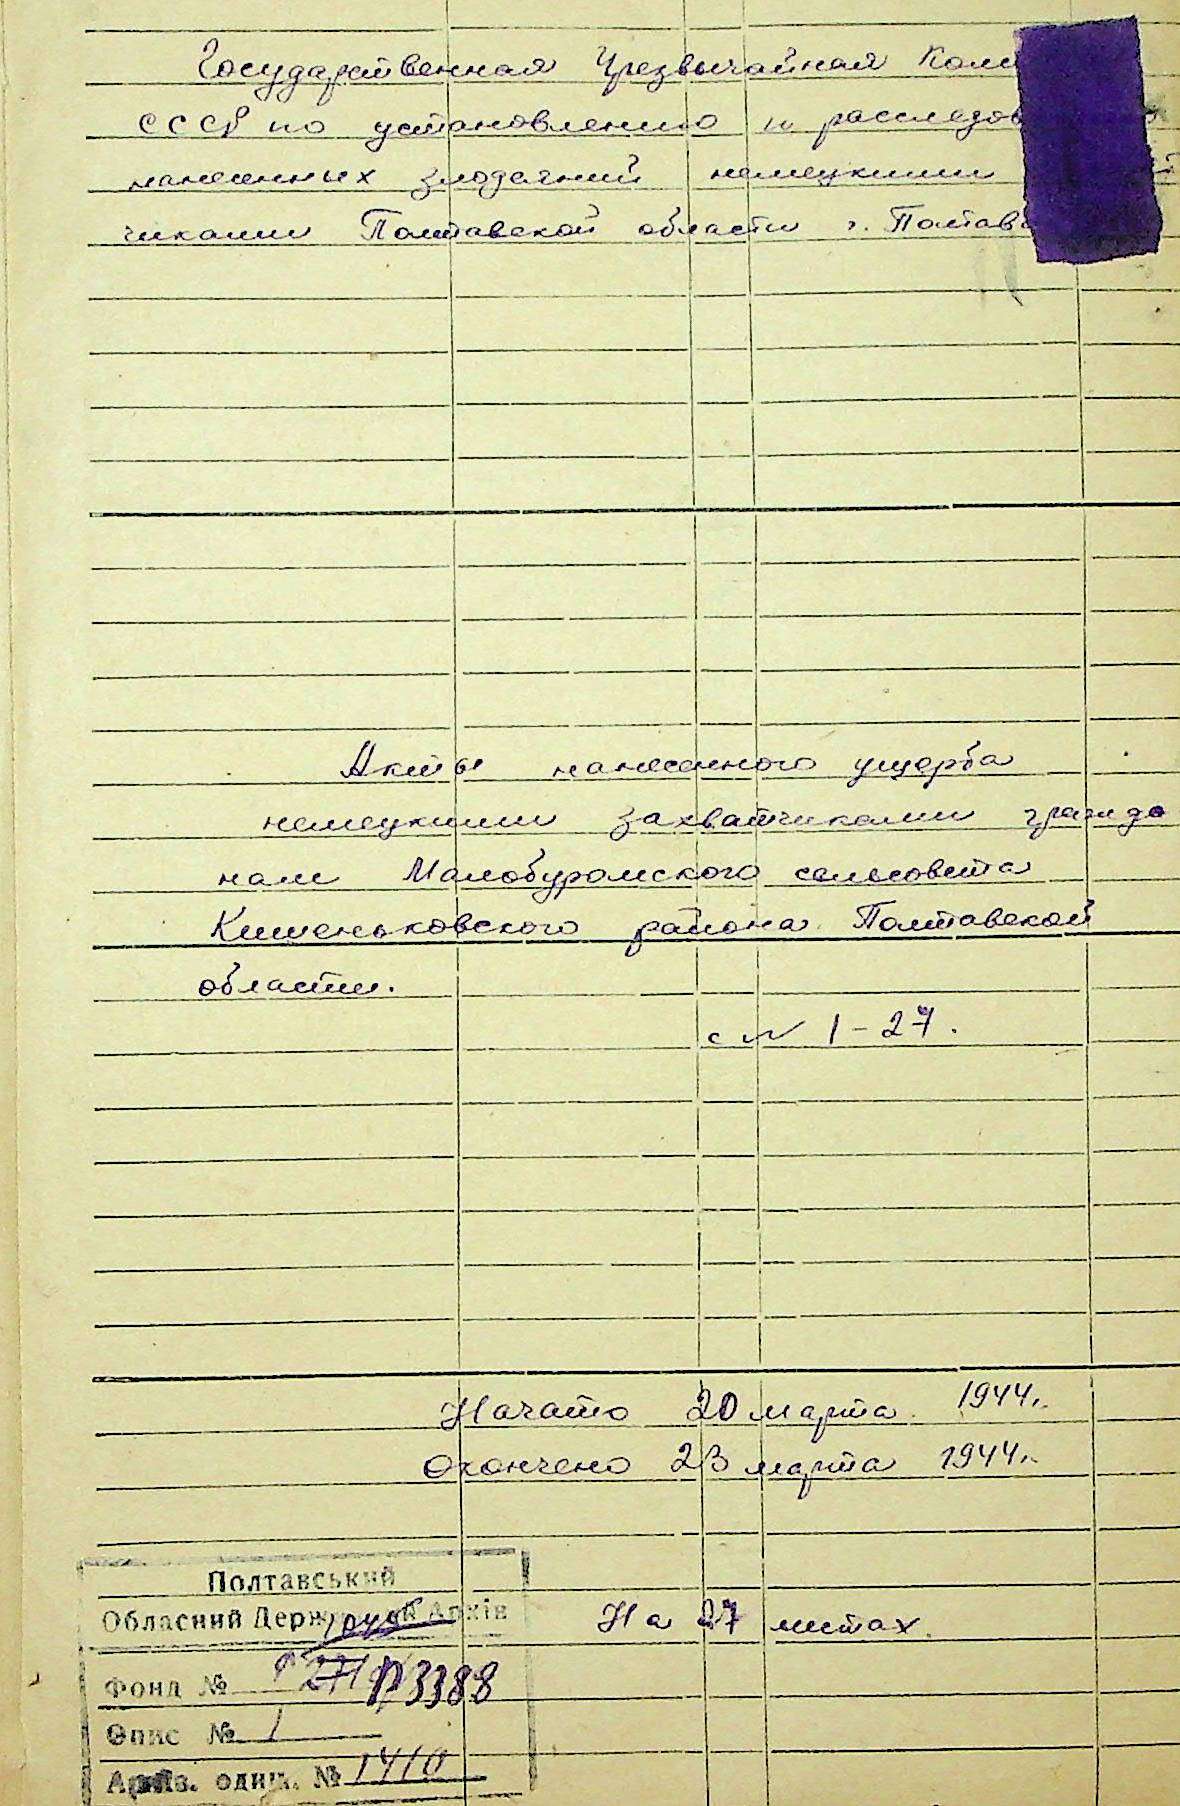 Государственная Чрезвычайная Ком
СССР по установлению и расследов
нанесенных злодеяний немецкими
чиками Полтавской области г. Полтав
Акты нанесенного ущерба
немецкими захватчиками гражда
нам Малобуромского сельсовета
Кишеньковского района Полтавской
области.
с № 1-27.
Начато 20 марта 1944г.
Окончено 23 марта 1944г.
Полтавський
Обласний Держ Архів
На 27 листах.
Фонд № Р3388
Опис № 1
Архів. один. № 1410